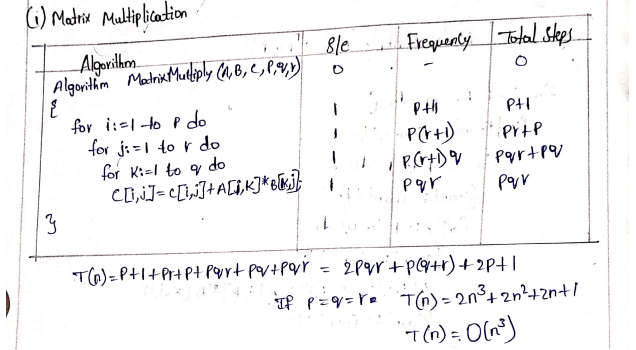 (i) Matrix Multiplication
Algorithm s/e Frequency Total Steps
Algorithm MatrixMultiply (A, B, C, P, q, r) 0 - 0
{
for i:=1 to P do 1 P+1 P+1
for j:=1 to r do 1 P(r+1) Pr+P
for K:=1 to q do 1 P(r+1)q Pqr+Pq
C[i,j]=C[i,j]+A[i,K]*B[K,j]; 1 Pqr Pqr
}
T(n)=P+1+Pr+P+Pqr+Pq+Pqr = 2Pqr+P(q+r)+2P+1
If P=q=r= T(n)=2n³+2n²+2n+1
T(n)=O(n³)